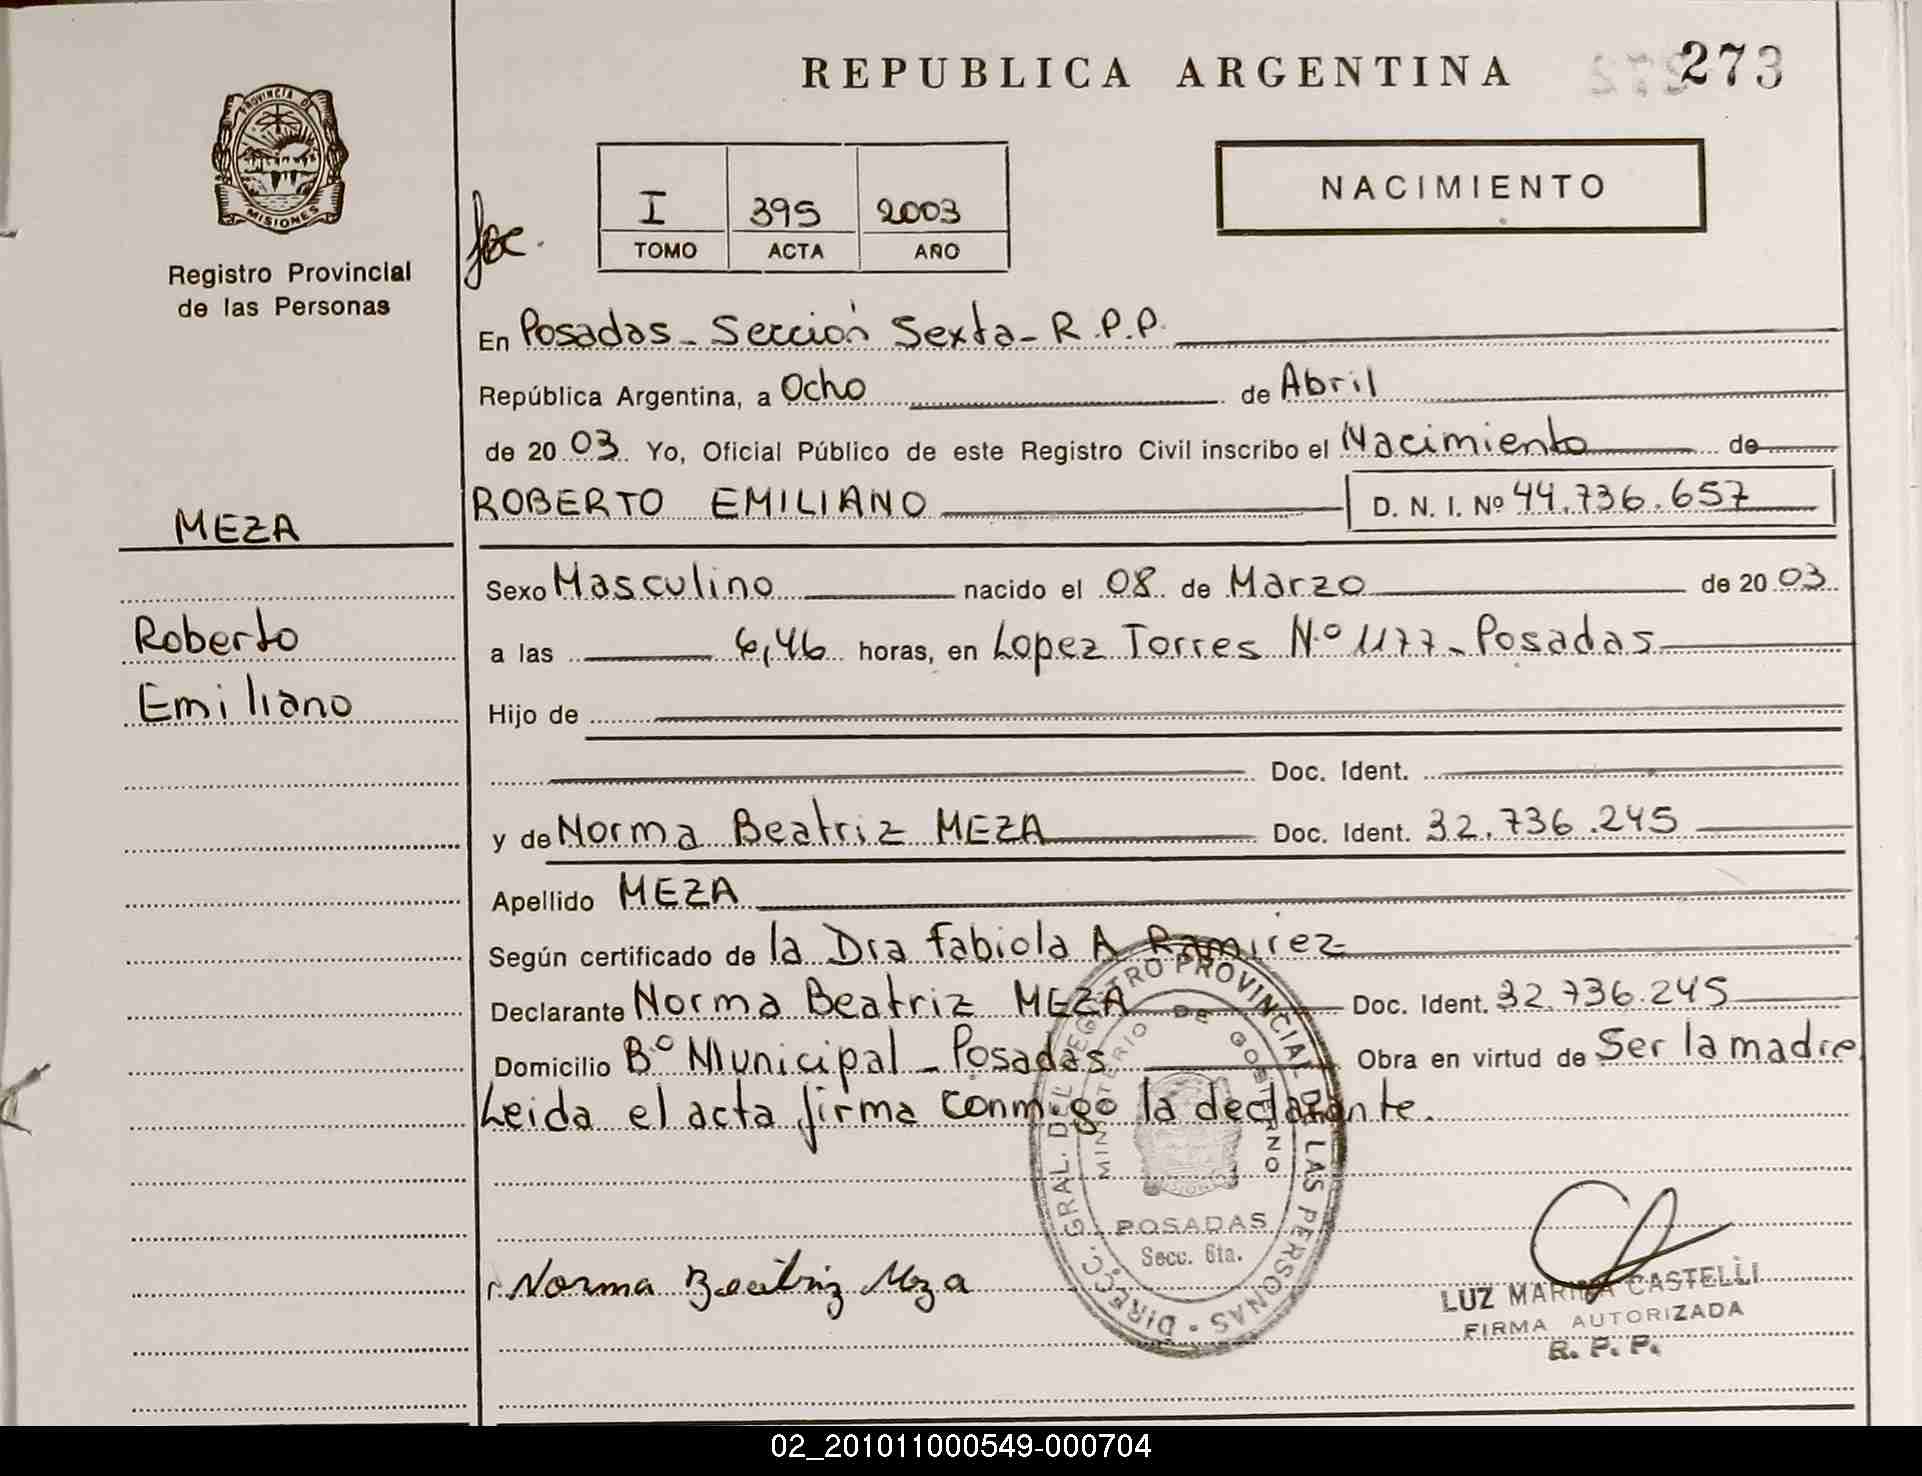 REPUBLICA ARGENTINA
273
PROVINCIA DE
MISIONES
Registro Provincial
de las Personas
I 395 2003
TOMO ACTA AÑO
NACIMIENTO
En Posadas - Sección Sexta - R.P.P.
República Argentina, a Ocho de Abril
de 20 03 Yo, Oficial Público de este Registro Civil inscribo el Nacimiento de
ROBERTO EMILIANO D. N. I. Nº 44.736.657
MEZA
Roberto
Emiliano
Sexo Masculino nacido el 08 de Marzo de 20 03
a las 6,46 horas, en Lopez Torres Nº 1177 - Posadas
Hijo de
Doc. Ident.
y de Norma Beatriz MEZA Doc. Ident. 32.736.245
Apellido MEZA
Según certificado de la Dra Fabiola A Ramirez
Declarante Norma Beatriz MEZA Doc. Ident. 32.736.245
Domicilio Bº Municipal - Posadas Obra en virtud de Ser la madre
Leida el acta firma conmigo la declarante.
DIREC. GRAL. DEL REGISTRO PROVINCIAL DE LAS PERSONAS
MINISTERIO DE GOBIERNO
POSADAS
Secc. 6ta.
Norma Beatriz Meza
LUZ MARINA CASTELLI
FIRMA AUTORIZADA
R. P. P.
02_201011000549-000704